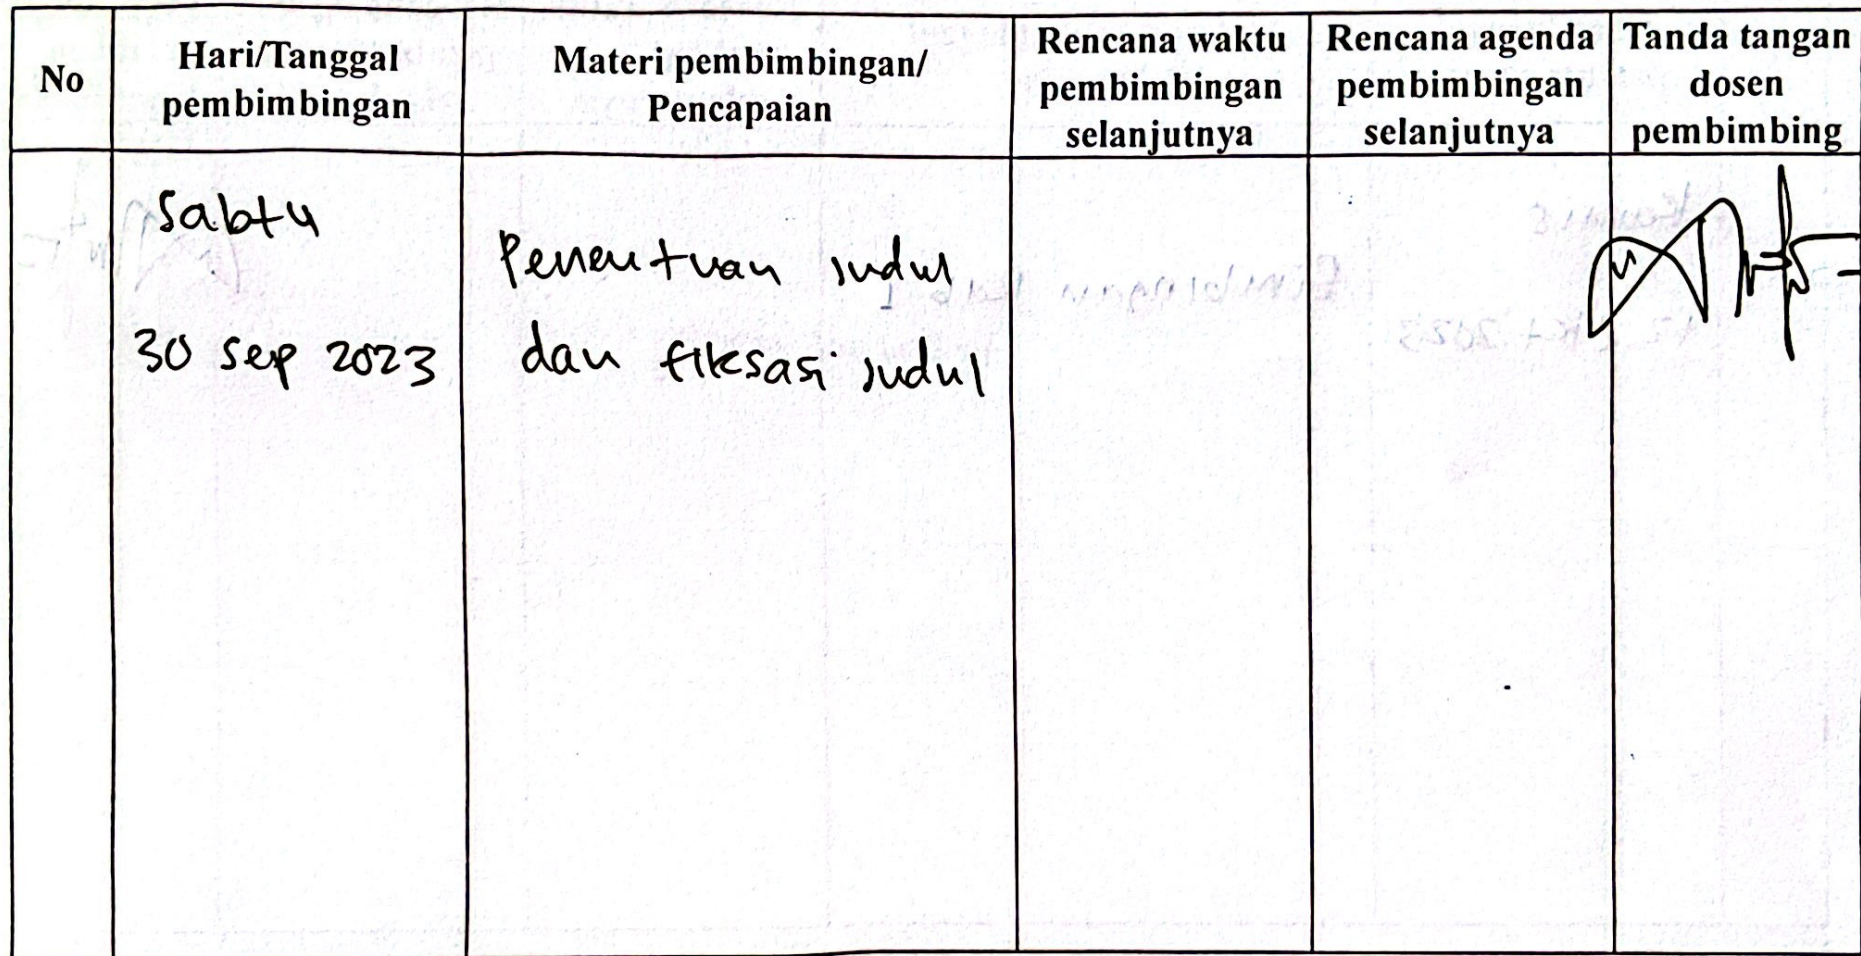 No
Hari/Tanggal
pembimbingan
Materi pembimbingan/
Pencapaian
Rencana waktu
pembimbingan
selanjutnya
Rencana agenda
pembimbingan
selanjutnya
Tanda tangan
dosen
pembimbing
Sabtu
30 Sep 2023
Penentuan judul
dan fiksasi judul